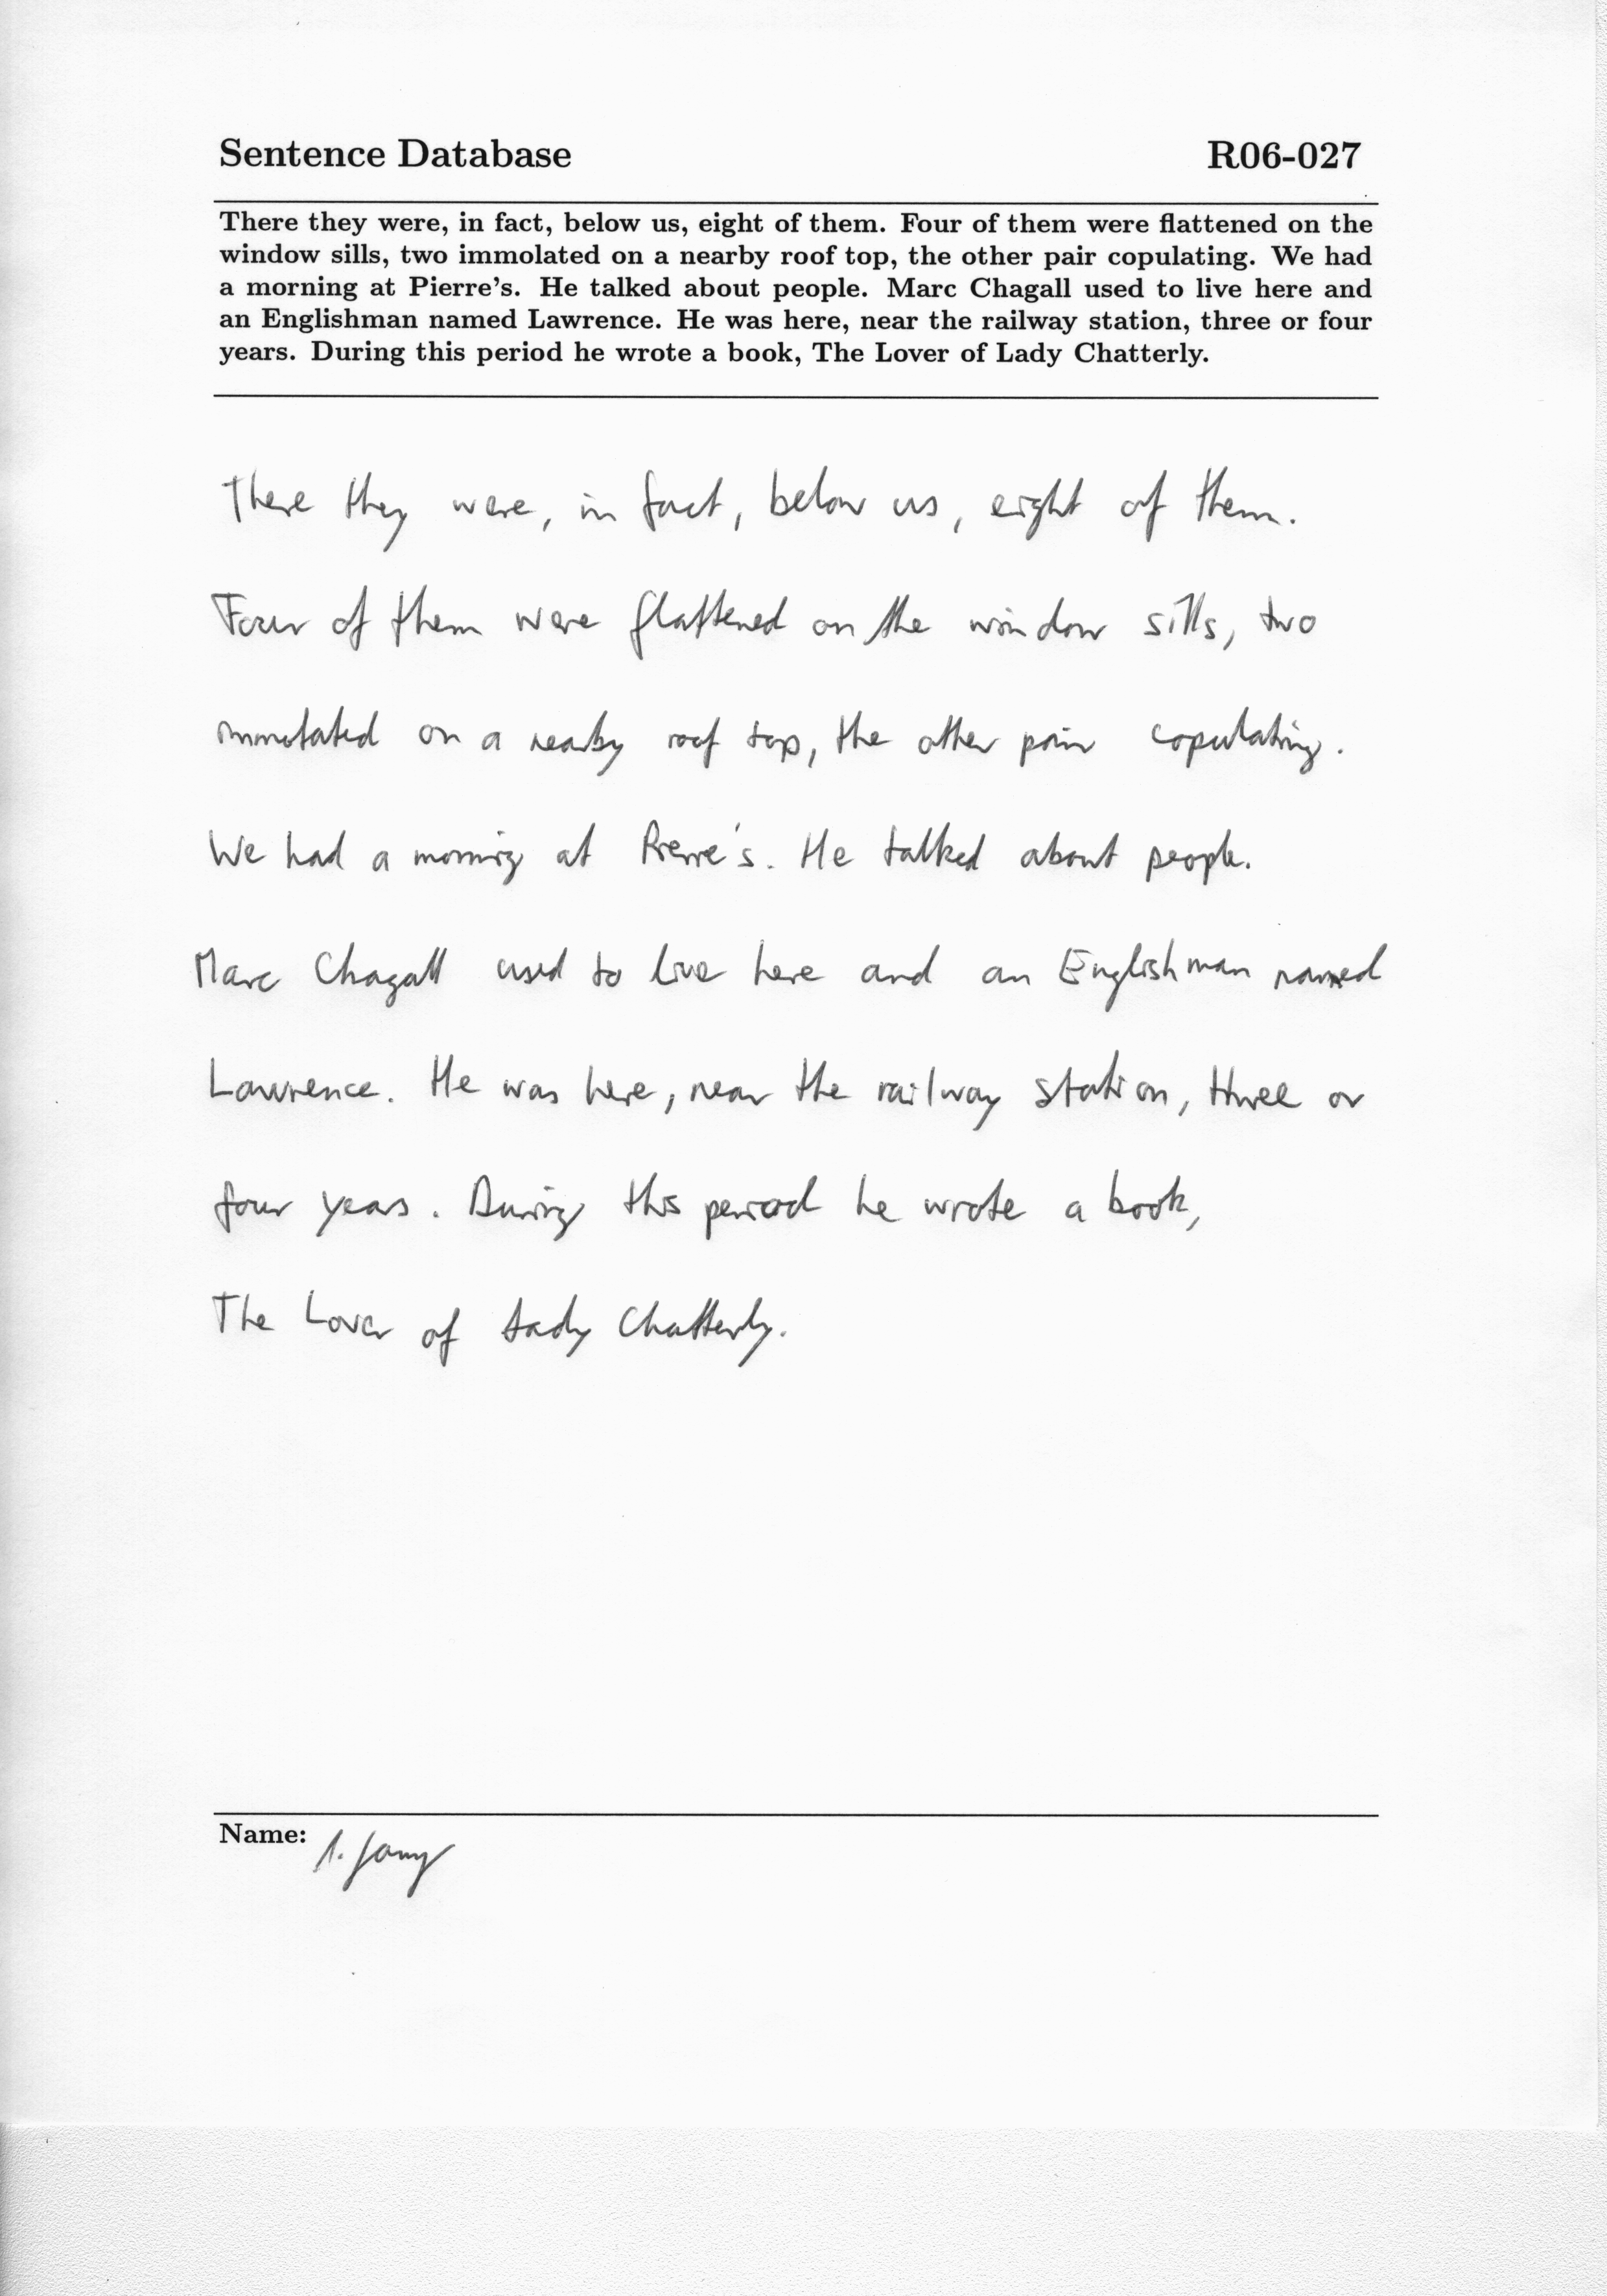 Sentence Database R06-027
There they were, in fact, below us, eight of them. Four of them were flattened on the
window sills, two immolated on a nearby roof top, the other pair copulating. We had
a morning at Pierre's. He talked about people. Marc Chagall used to live here and
an Englishman named Lawrence. He was here, near the railway station, three or four
years. During this period he wrote a book, The Lover of Lady Chatterly.
There they were, in fact, below us, eight of them.
Four of them were flattened on the window sills, two
immolated on a nearby roof top, the other pair copulating.
We had a morning at Pierre's. He talked about people.
Marc Chagall used to live here and an Englishman named
Lawrence. He was here, near the railway station, three or
four years. During this period he wrote a book,
The Lover of Lady Chatterly.
Name: